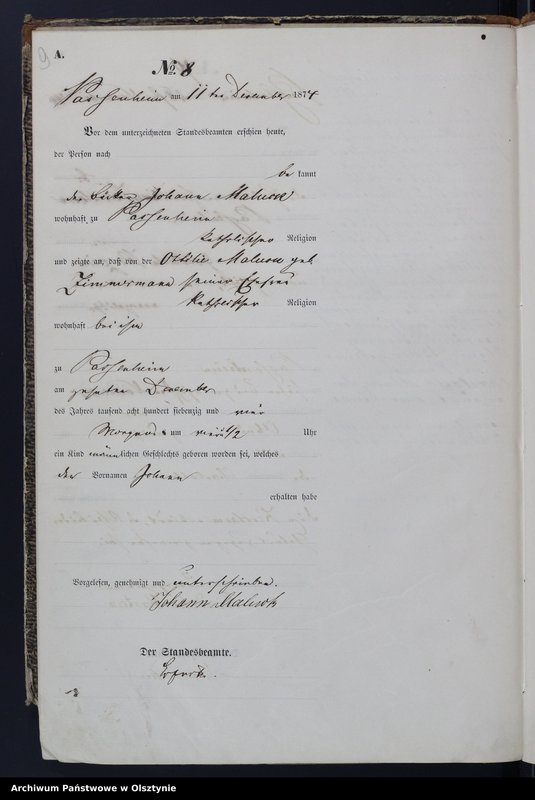 9
A.
№ 8
Passenheim am 11ten December 1874
Vor dem unterzeichneten Standesbeamten erschien heute,
der Person nach
be kannt
der Johann
wohnhaft zu Passenheim
katholischer Religion
und zeigte an, daß von der Ottilie geb
Zimmermann seiner Ehefrau
katholischer Religion
wohnhaft bei ihm
zu Passenheim
am zehnten December
des Jahres tausend acht hundert siebenzig und vier
Morgens um vier 1/2 Uhr
ein Kind männlichen Geschlechts geboren worden sei, welches
den Vornamen Johann
erhalten habe
Vorgelesen, genehmigt und unterschrieben.
Johann
Der Standesbeamte.
Archiwum Państwowe w Olsztynie